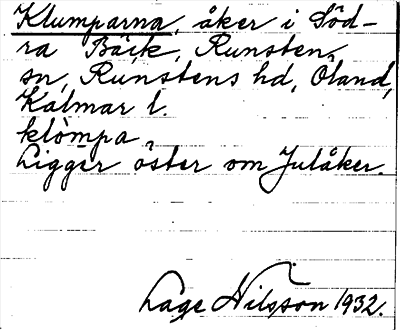 Klumparna, åker i Söd-
ra Bäck, Runsten,
sn, Runstens hd, Öland,
Kalmar l.
klòmpa
Ligger öster om Julåker.
Lage Nilsson 1932.